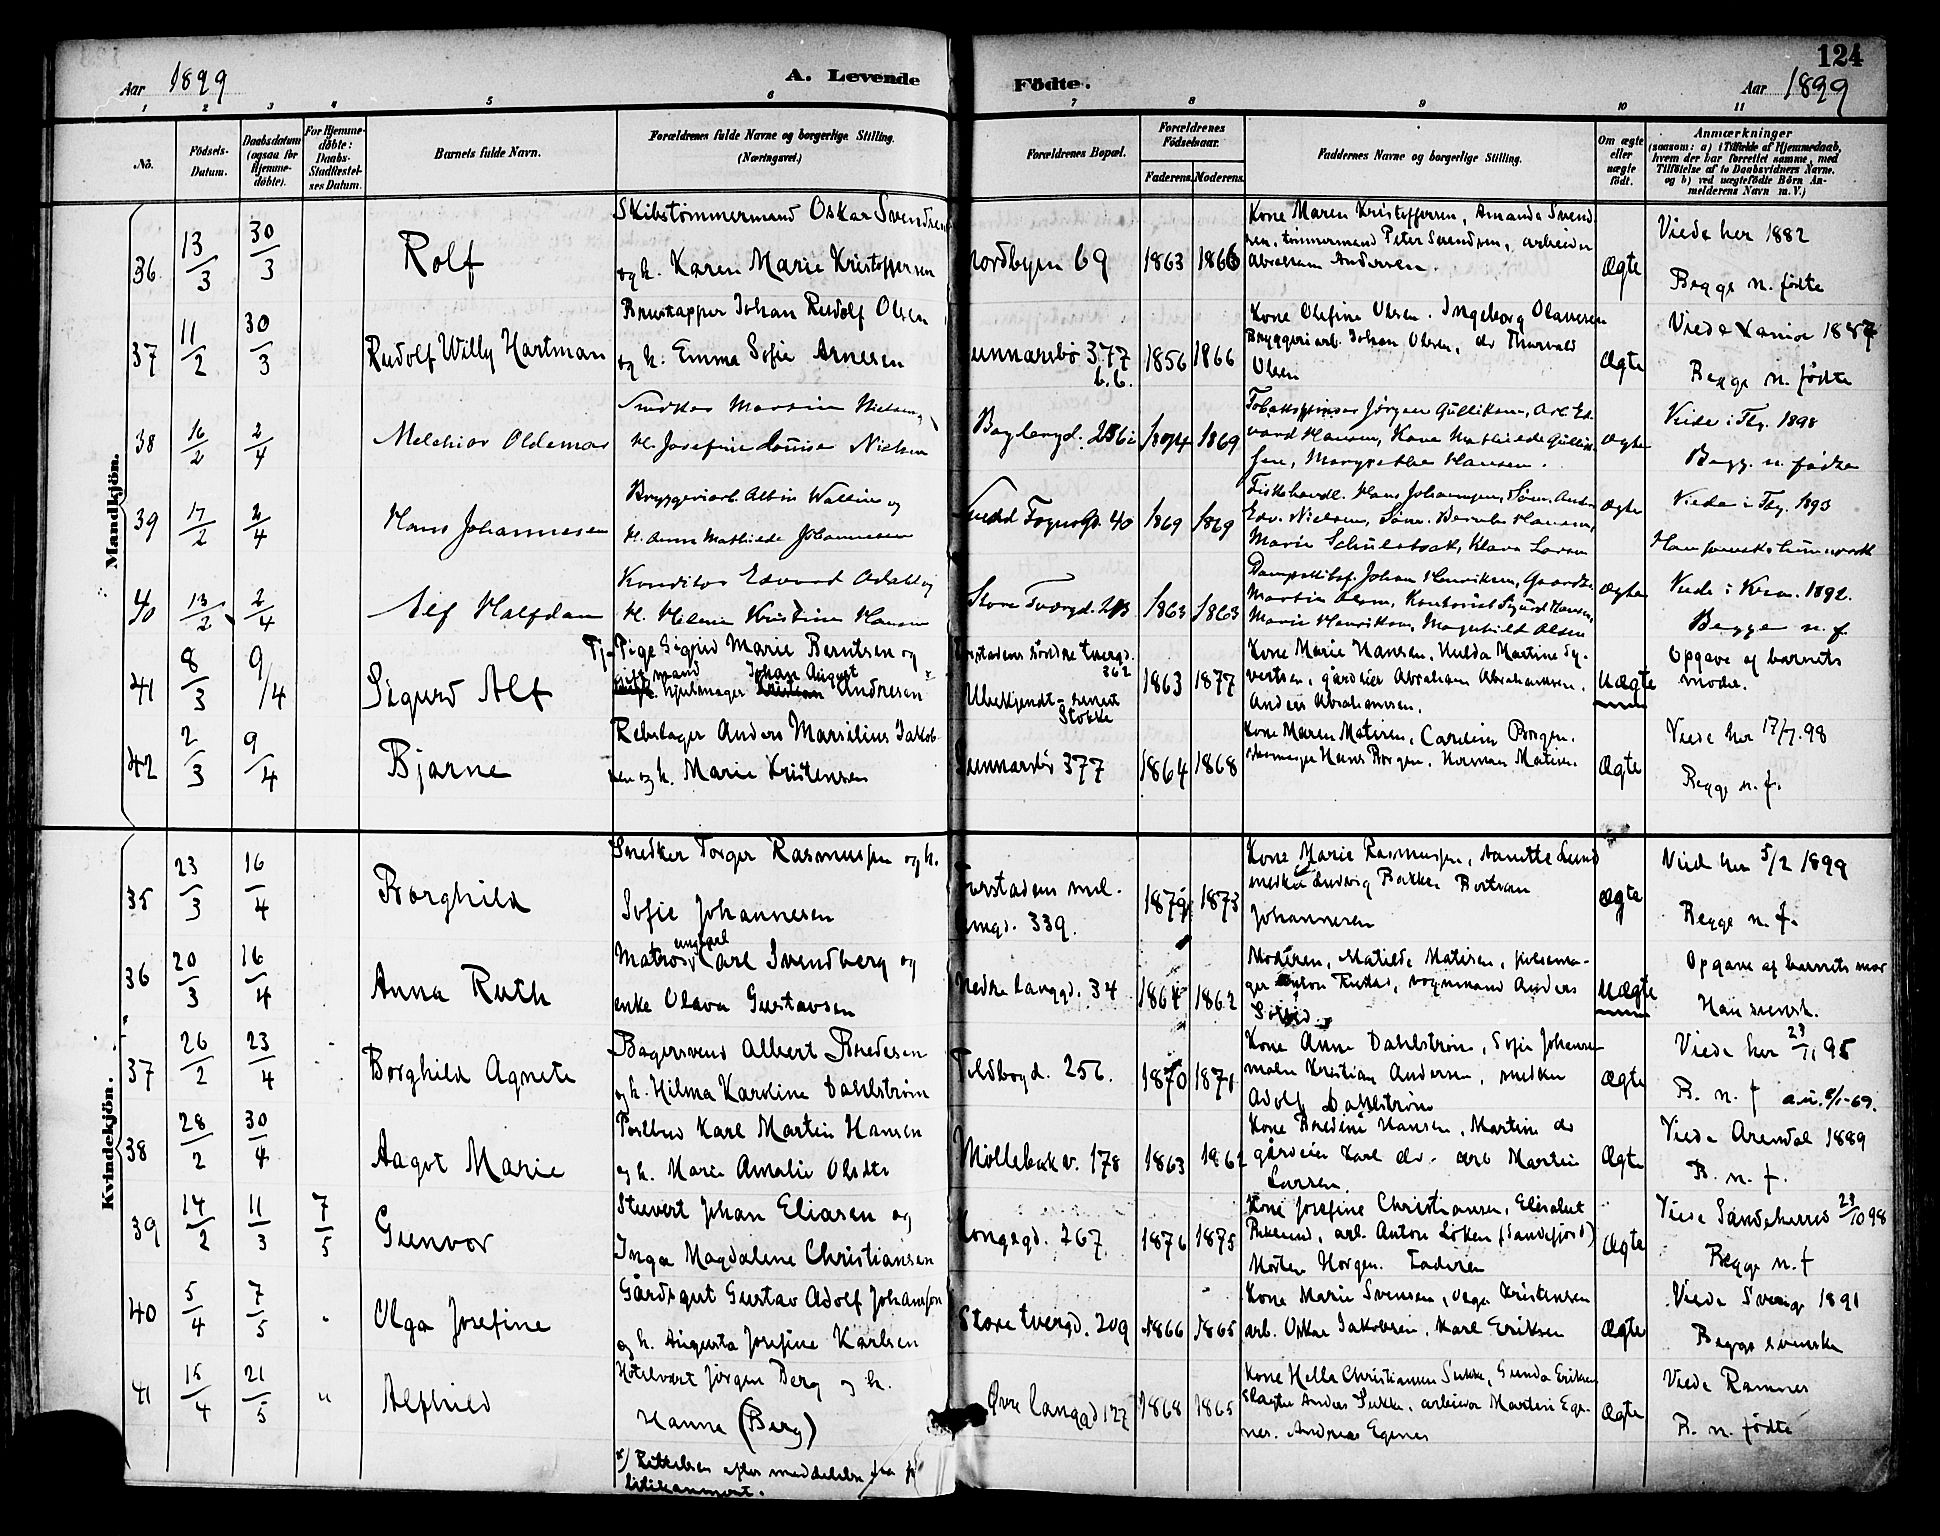 124
Aar 1899
A. Levende Födte.
Aar 1899
1 2 3 4 5 6 7 8 9 10 11
No.
Födsels-Datum.
Daabsdatum (ogsaa for Hjemme-döbte).
For Hjemme-döbte: Daabs-Stadfæstel-ses Datum.
Barnets fulde Navn.
Forældrenes fulde Navne og borgerlige Stilling. (Næringsvei.)
Forældrenes Bopæl.
Forældrenes Födselsaar.
Faderens. Moderens.
Faddernes Navne og borgerlige Stilling.
Om ægte eller uægte födt.
Anmærkninger (saasom: a) i Tilfælde af Hjemmedaab, hvem der har forrettet samme, med Tilföielse af to Daabsvidners Navne. og b) ved uægtefödte Börn An-melderens Navn m. V.)
Mandkjön.
36 13/3 30/3 Rolf
Skibstømmermand Oskar Svendsen
og h. Karen Marie Kristoffersen
Nordbyen 69 1863 1866
Kone Maren Kristoffersen, Amanda Svend-
sen, tømmermand Peter Svendsen, arbeider
Abraham Andersen.
Ægte
Viede her 1882
Begge n. fødte
37 11/2 30/3 Rudolf Willy Hartman
Johan Rudolf Olsen
og h. Emma Sofie Arnesen
Gunnarsbø 377 b.b. 1856 1866
Kone Olefine Olsen. Ingeborg Olavesen
Bryggeriarb. Johan Olsen, do Thorvald
Olsen
Ægte
Begge n. fødte
38 16/2 2/4 Melchior Oldemar
Snedker Martin Nielsen
H. Josefine Louise Nielsen
1869
Jørgen Gulliksen, Arb. Ed-
vard Hansen, Kone Mathilde Gullik-
sen, Margrethe Hansen.
Ægte
Viede i Tbg. 1898
Begg. n. fødte
39 17/2 2/4 Hans Johannesen
Bryggeriarb. Albin Wallin og
H. Anna Mathilde Johannesen
40 1869 1869
Fiskehandl. Hans Johannesen, Søm. Anton
Edv. Nielsen, Søm. Hansen,
Marie Klara Larsen
Ægte
Viede i Tbg. 1893
40 13/2 2/4 Alf Halfdan
Konditor Edvard
H. Helene Kristine Hansen
Store Tværgd. 1863 1863
Johan Henriksen,
Martin Olsen, Kontorist Sigurd Hansen,
Marie Henriksen, Magnhild Olsen
Ægte
Viede i Krna. 1892.
Begge n. f.
41 8/3 9/4 Sigurd Alf
Tj. Pige Sigrid Marie Berntsen og
gift mand Johan August
hjulmager Kristian Andresen x
Farstadens søndre tvergd. 362
Ubekjendt - senest Stokke
1863 1877
Kone Marie Hansen, Hulda Martine Sy-
vertsen, gårdeier Abraham Abrahamsen.
Anders Abrahamsen.
Uægte
Opgave af barnets
moder.
42 2/3 9/4 Bjarne
Rebslager Anders Marsilius Jakob-
sen og h. Marie Kristensen
Gunnarsbø 377 1864 1868
Kone Maren Matisen, Caroline Borgen.
Hans Borgen, Herman Matisen.
Ægte
Viede her 17/7. 98
Begge n. f.
Kvindekjön.
35 23/3 16/4 Borghild
Snedker Torger Rasmussen og h.
Sofie Johannesen
Farstadens
339. 1879 1873
Kone Marie Rasmussen, Nanette Lund
snedker Ludvig Bakken
Johannesen
Ægte
Viede her 5/2 1899
Begge n. f.
36 20/3 16/4 Anna Ruth
Matros, ungkarl Carl Svendberg og
enke Olava Gustavsen
Nedre Langgd. 34 1864 1862
Moderen, Matilde Matisen, pølsema-
ger Anton vognmand Anders
Uægte
Opgave af barnets mor
Han svensk.
37 26/2 23/4 Borghild Agnete
Bagersvend Albert Bredesen
og h. Hilma Karoline Dahlstrøm
Toldbogd. 256. 1870 1871
Kone Anne Dahlstrøm, Sofie Johansen
maler Kristian Andersen, snedker
Adolf Dahlstrøm
Ægte
Viede her 23/11 95
B. n. f
38 28/2 30/4 Aagot Marie
Postbud Karl Martin Hansen
og h. Marie Amalie Olsdtr
Møllebakv. 178 1863 1862
Kone Bredine Hansen, Martine do
gårdeier Karl do. arb Martin
Larsen
Ægte
Viede Arendal 1889
B. n. f.
39 14/2 11/3 7/5 Gunvor
Stuvert Johan Eliasen og
Inga Magdalene Christiansen
Kongegd. 267 1876 1875
Kone Josefine Christiansen, Elisabet
arb. Anton Løken (Sandefjord)
Morten Horgen. Faderen
Ægte
Viede Sandeherred 23/10 98
Begge n. f
40 5/4 7/5 " Olga Josefine
Gårdsgut Gustav Adolf Johansson
og h. Augusta Josefine Karlsen
Store tvergd. 209 1866 1865
Kone Marie Svensen, Olga Kristensen
arb. Oskar Jakobsen, Karl Eriksen
Ægte
Viede Sverige 1891
Begge svenske
41 15/4 21/5 " Alfhild
Hotelvert Jørgen Berg og h.
Hanne (Berg)
Øvre Langgd 127 1868 1865
Kone Helle Christiansen Sukke, Gunda Eriksen
Slagter Anders Sukke, arbeider Martin Ege-
nes. Andreas Egenes
Ægte
Viede Ramnes
B. n. fødte
x) Rettelsen efter meddelelse fra